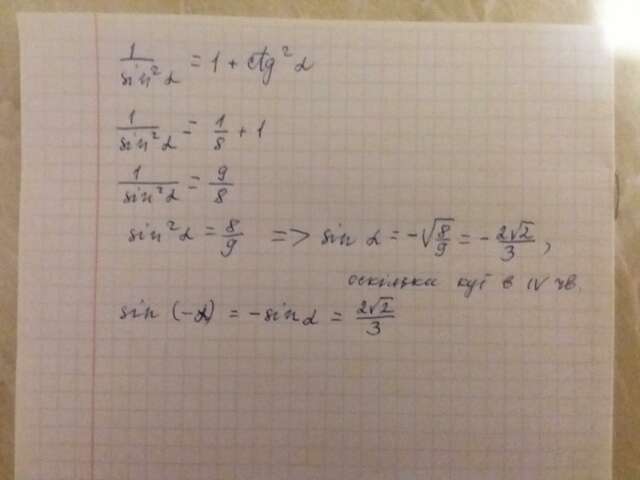 1/sin²α = 1 + ctg²α
1/sin²α = 1/8 + 1
1/sin²α = 9/8
sin²α = 8/9 => sin α = -√(8/9) = -2√2/3,
оскільки кут в IV чв.
sin (-α) = -sin α = 2√2/3